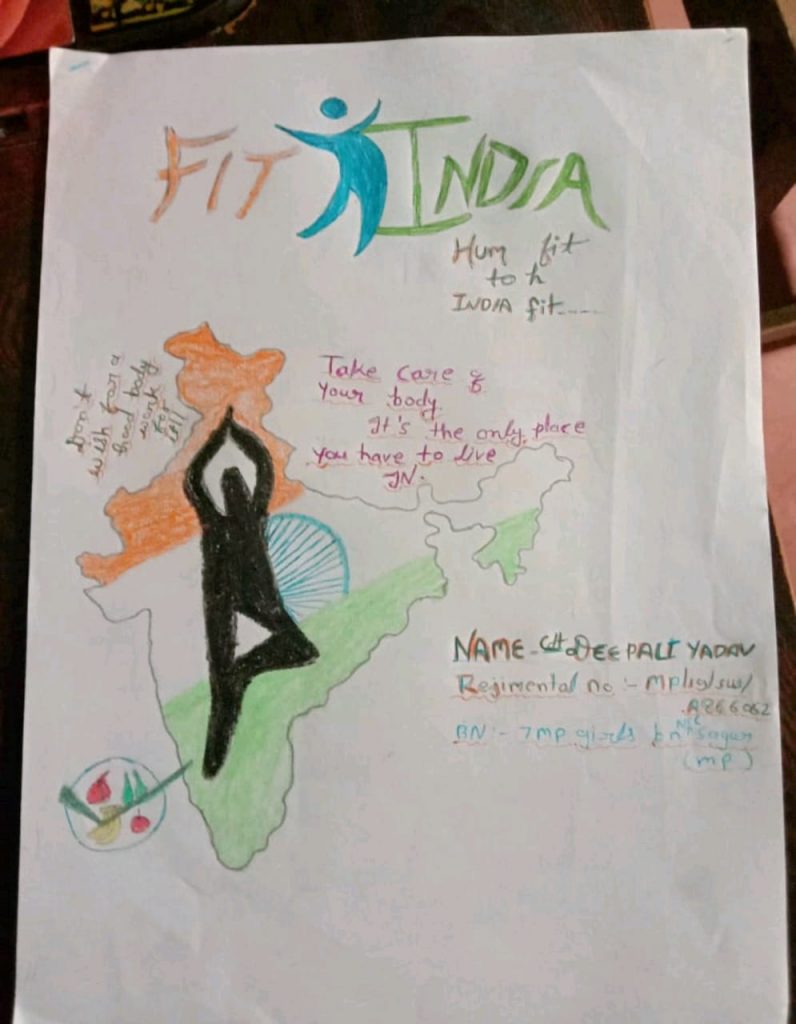 FIT INDIA
Hum fit
to h
INDIA fit.....
Don't
wish for a
good body
work
for
it!!
Take care of
your body.
It's the only place
you have to live
IN.
NAME - Cdt DEEPALI YADAV
Regimental no :- MP/19/SW/
A866062
BN :- 7 MP girls bn Ncc Sagar
(MP)